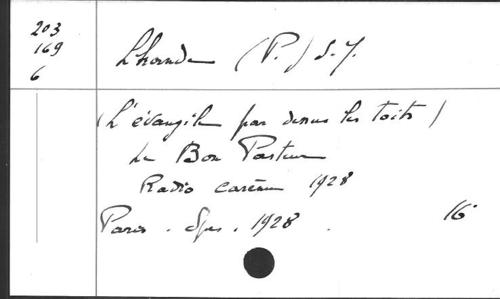 203
169
6
Lhande (P.) S. J.
(L'évangile par dessus les toits)
Le Bon Pasteur
Radio carême 1928
Paris. Spes. 1928. 16°